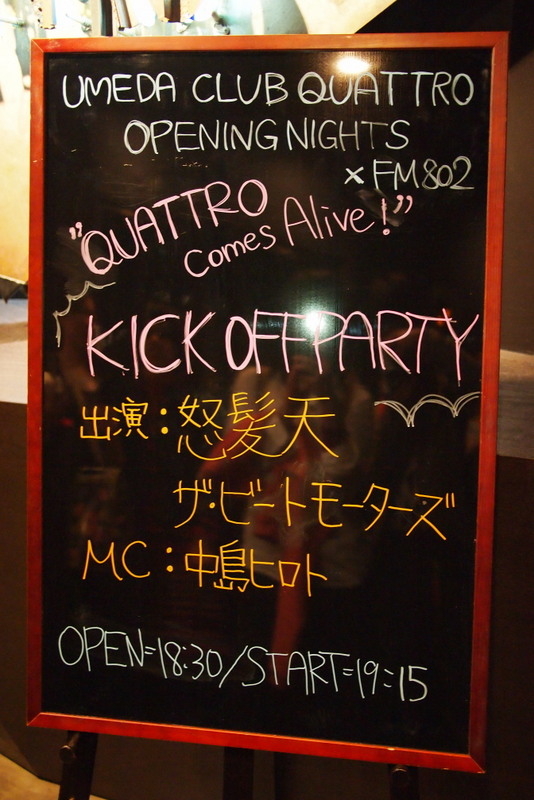 UMEDA CLUB QUATTRO
OPENING NIGHTS
× FM802
"QUATTRO
comes Alive!"
KICK OFF PARTY
出演:怒髪天
ザ・ビートモーターズ
MC:中島ヒロト
OPEN=18:30/START=19:15